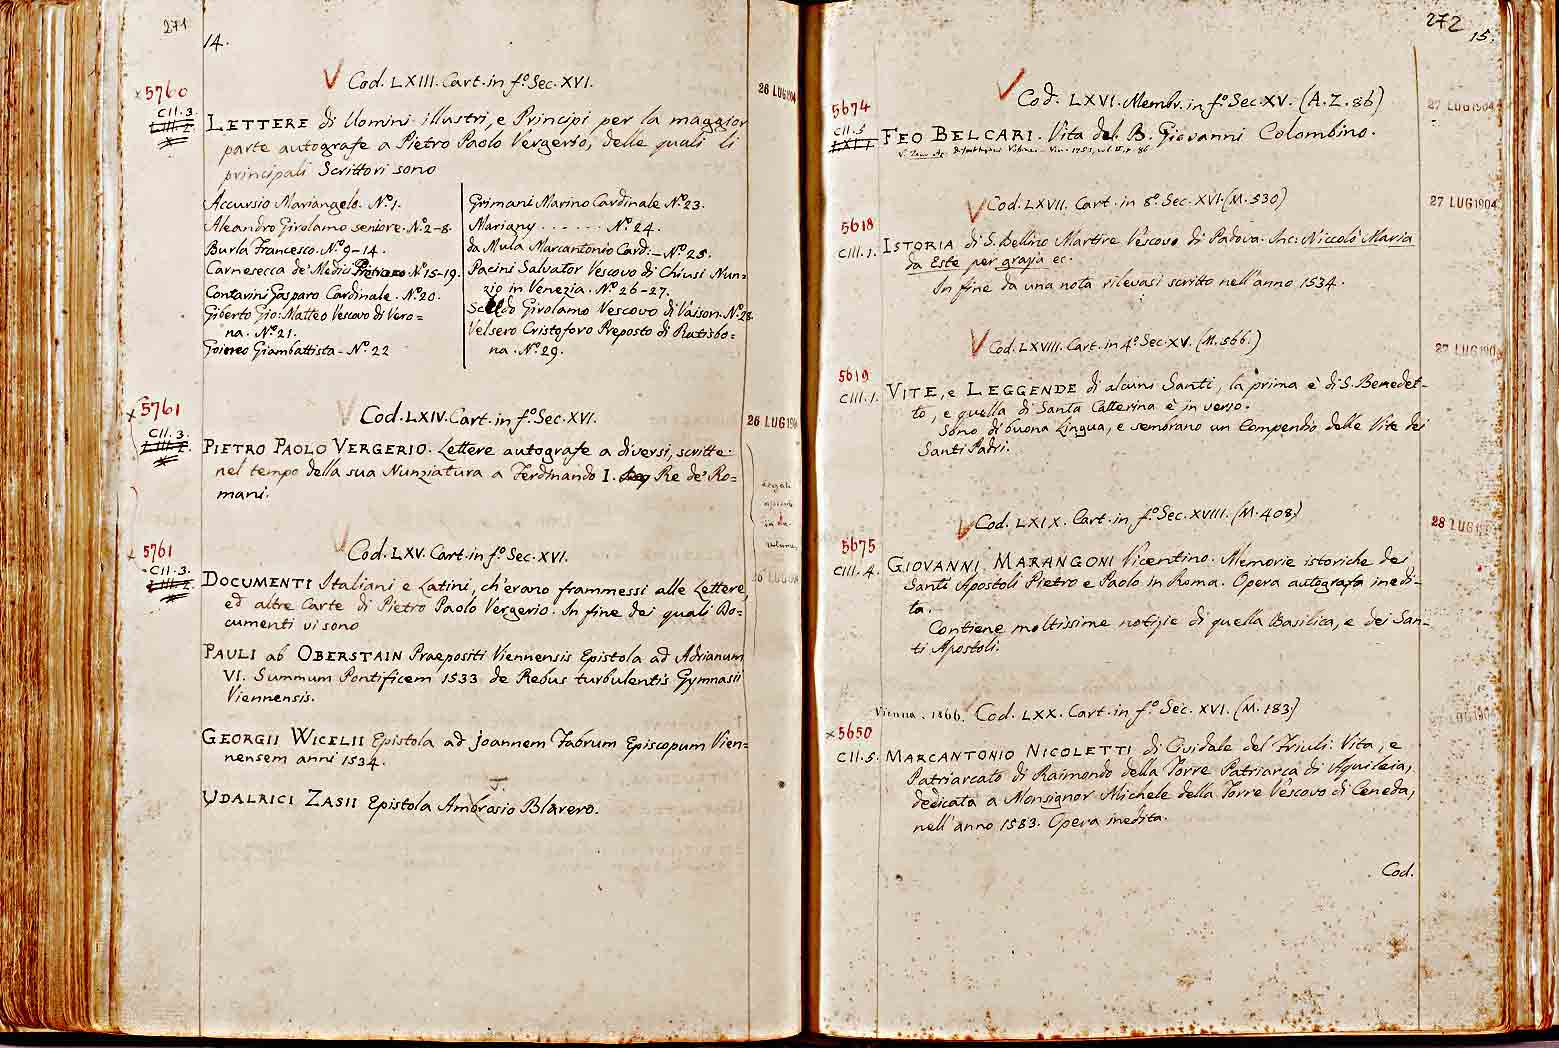 271
14.
Cod. LXIII. Cart. in fº. Sec. XVI.
26 LUG 1904
5760
CII.3.
LETTERE di Uomini illustri, e Principi per la maggior
parte autografe a Pietro Paolo Vergerio, delle quali li
principali Scrittori sono
Accursio Mariangelo. Nº. 1.
Aleandro Girolamo seniore. Nº. 2-8.
Burla Francesco. Nº. 9-14.
Carnesecca de' Medici Nº. 15-19.
Contarini Gasparo Cardinale. Nº. 20.
Giberto Gio: Matteo Vescovo di Vero=
na. Nº. 21.
Giambattista - Nº. 22
Grimani Marino Cardinale Nº. 23.
Mariany . . . . . . Nº. 24.
da Mula Marcantonio Card. - Nº. 25.
Pacini Salvator Vescovo di Chiusi Nun=
zio in Venezia. Nº. 26-27.
Girolamo Vescovo di Vaison. Nº. 28.
Velsero Cristoforo Preposto di Ratisbo=
na. Nº. 29.
Cod. LXIV. Cart. in fº. Sec. XVI.
26 LUG 1904
5761
CII.3.
PIETRO PAOLO VERGERIO. Lettere autografe a diversi, scritte
nel tempo della sua Nunziatura a Ferdinando I. Re de' Ro=
mani.
Legati
in un
volume
Cod. LXV. Cart. in fº. Sec. XVI.
5761
CII.3.
26 LUG
DOCUMENTI Italiani e Latini, ch'erano frammessi alle Lettere,
ed altre Carte di Pietro Paolo Vergerio. In fine dei quali Do=
cumenti vi sono
PAULI ab OBERSTAIN Praepositi Viennensis Epistola ad Adrianum
VI. Summum Pontificem 1533 de Rebus turbulentis Gymnasii
Viennensis.
GEORGII WICELII Epistola ad Joannem Fabrum Episcopum Vien=
nensem anni 1534.
UDALRICI ZASII Epistola Ambrosio Blarero.
272
15.
Cod. LXVI. Membr. in fº. Sec. XV. (A.Z. 86)
27 LUG 1904
5674
CII.5
FEO BELCARI. Vita del B. Giovanni Colombino.
Cod. LXVII. Cart. in 8º. Sec. XVI. (M. 530)
27 LUG 1904
5618
CIII.1.
ISTORIA di S. Bellino Martire Vescovo di Padova. Inc: Niccolò Maria
da Este per grazia ec.
In fine da una nota rilevasi scritto nell'anno 1534.
Cod. LXVIII. Cart. in 4º. Sec. XV. (M. 566.)
27 LUG 1904
5619
CIII.1.
VITE, e LEGGENDE di alcuni Santi, la prima è di S. Benedet-
to, e quella di Santa Catterina è in verso.
Sono di buona Lingua, e sembrano un Compendio delle Vite dei
Santi Padri.
Cod. LXIX. Cart. in fº. Sec. XVIII. (M. 408.)
28 LUG
5675
CIII.4.
GIOVANNI MARANGONI Vicentino. Memorie istoriche dei
Santi Apostoli Pietro e Paolo in Roma. Opera autografa inedi-
ta.
Contiene moltissime notizie di quella Basilica, e dei San-
ti Apostoli.
Vienna. 1866. Cod. LXX. Cart. in fº. Sec. XVI. (M. 183)
27 LUG 1904
5650
CII.5.
MARCANTONIO NICOLETTI di Cividale del Friuli. Vita, e
Patriarcato di Raimondo della Torre Patriarca di Aquileia,
dedicata a Monsignor Michele della Torre Vescovo di Ceneda,
nell'anno 1583. Opera inedita.
Cod.